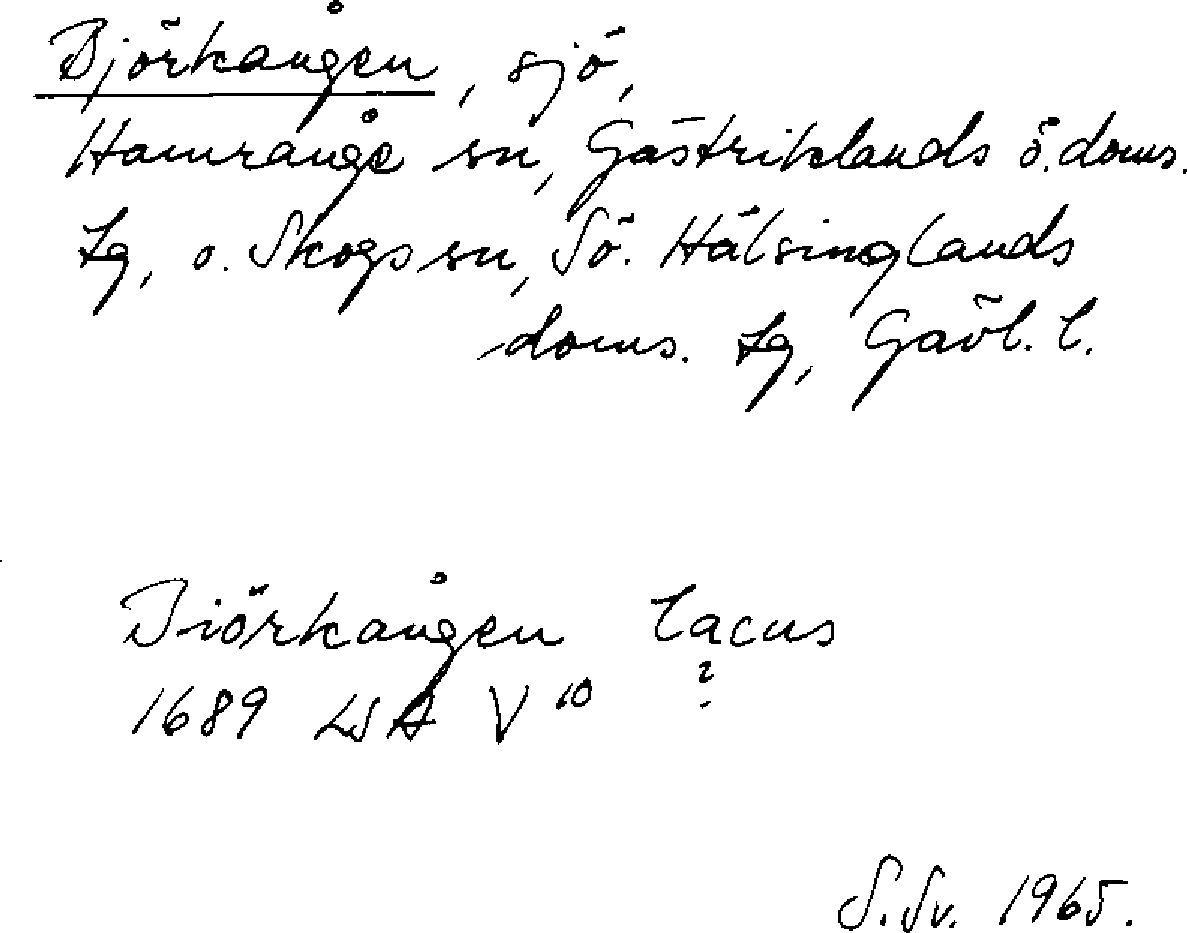 Björkången, sjö,
Hamrånge sn, Gästriklands ö. doms.
lg, o. Skogs sn, Sö. Hälsinglands
doms. lg, Gävl. l.
Biörkången lacus
1689 LSA V 10 ?
S. Sv. 1965.